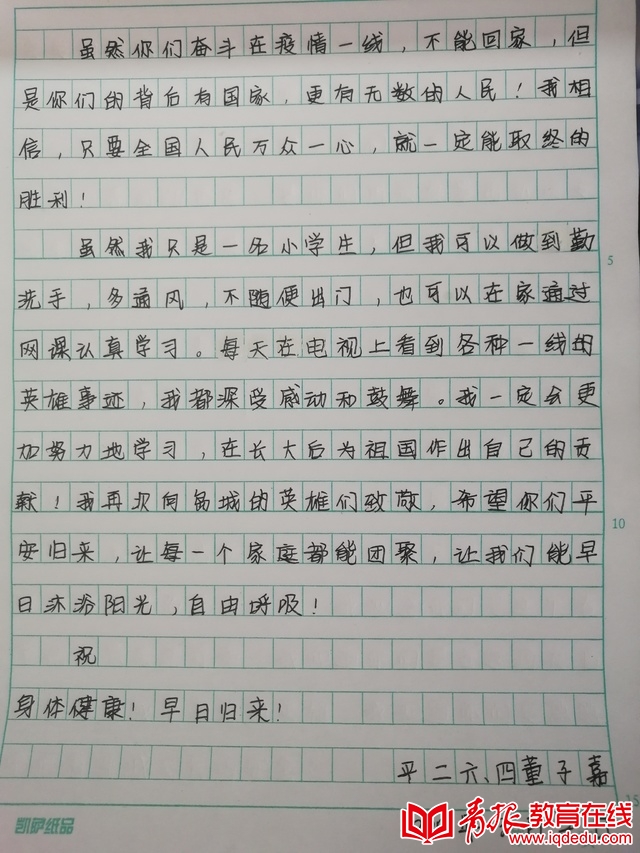 虽然你们奋斗在疫情一线，不能回家，但
是你们的背后有国家，更有无数的人民！我相
信，只要全国人民万众一心，就一定能取终的
胜利！
虽然我只是一名小学生，但我可以做到勤
洗手，多通风，不随便出门，也可以在家通过
网课认真学习。每天在电视上看到各种一线的
英雄事迹，我都深受感动和鼓舞。我一定会更
加努力地学习，在长大后为祖国作出自己的贡
献！我再次向各城的英雄们致敬，希望你们平
安归来，让每一个家庭都能团聚，让我们能早
日沐浴阳光，自由呼吸！
祝
身体健康！早日归来！
平二六、四董子嘉
5
10
15
凯萨纸品
青报教育在线
www.qdedu.com